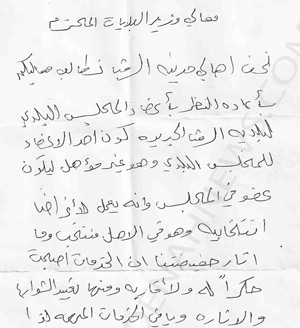 معالي وزير البلديات المحترم
نحن اهالي مدينة الرمثا نطالب معاليكم
بأعاده النظر بأعضاء المجلس البلدي
لبلدية الرمثا الجديده كون احد الاعضاء
للمجلس البلدي وهو غير مؤهل ليكون
عضو في المجلس وانه يعمل لأغراض
انتخابيه وهو في الاصل منتخب وما
اثار حفيضتنا ان الخدمات اصبحت
حكراً له ولأقاربه ومنها تعبيد الشوارع
والاناره وباقي الخدمات